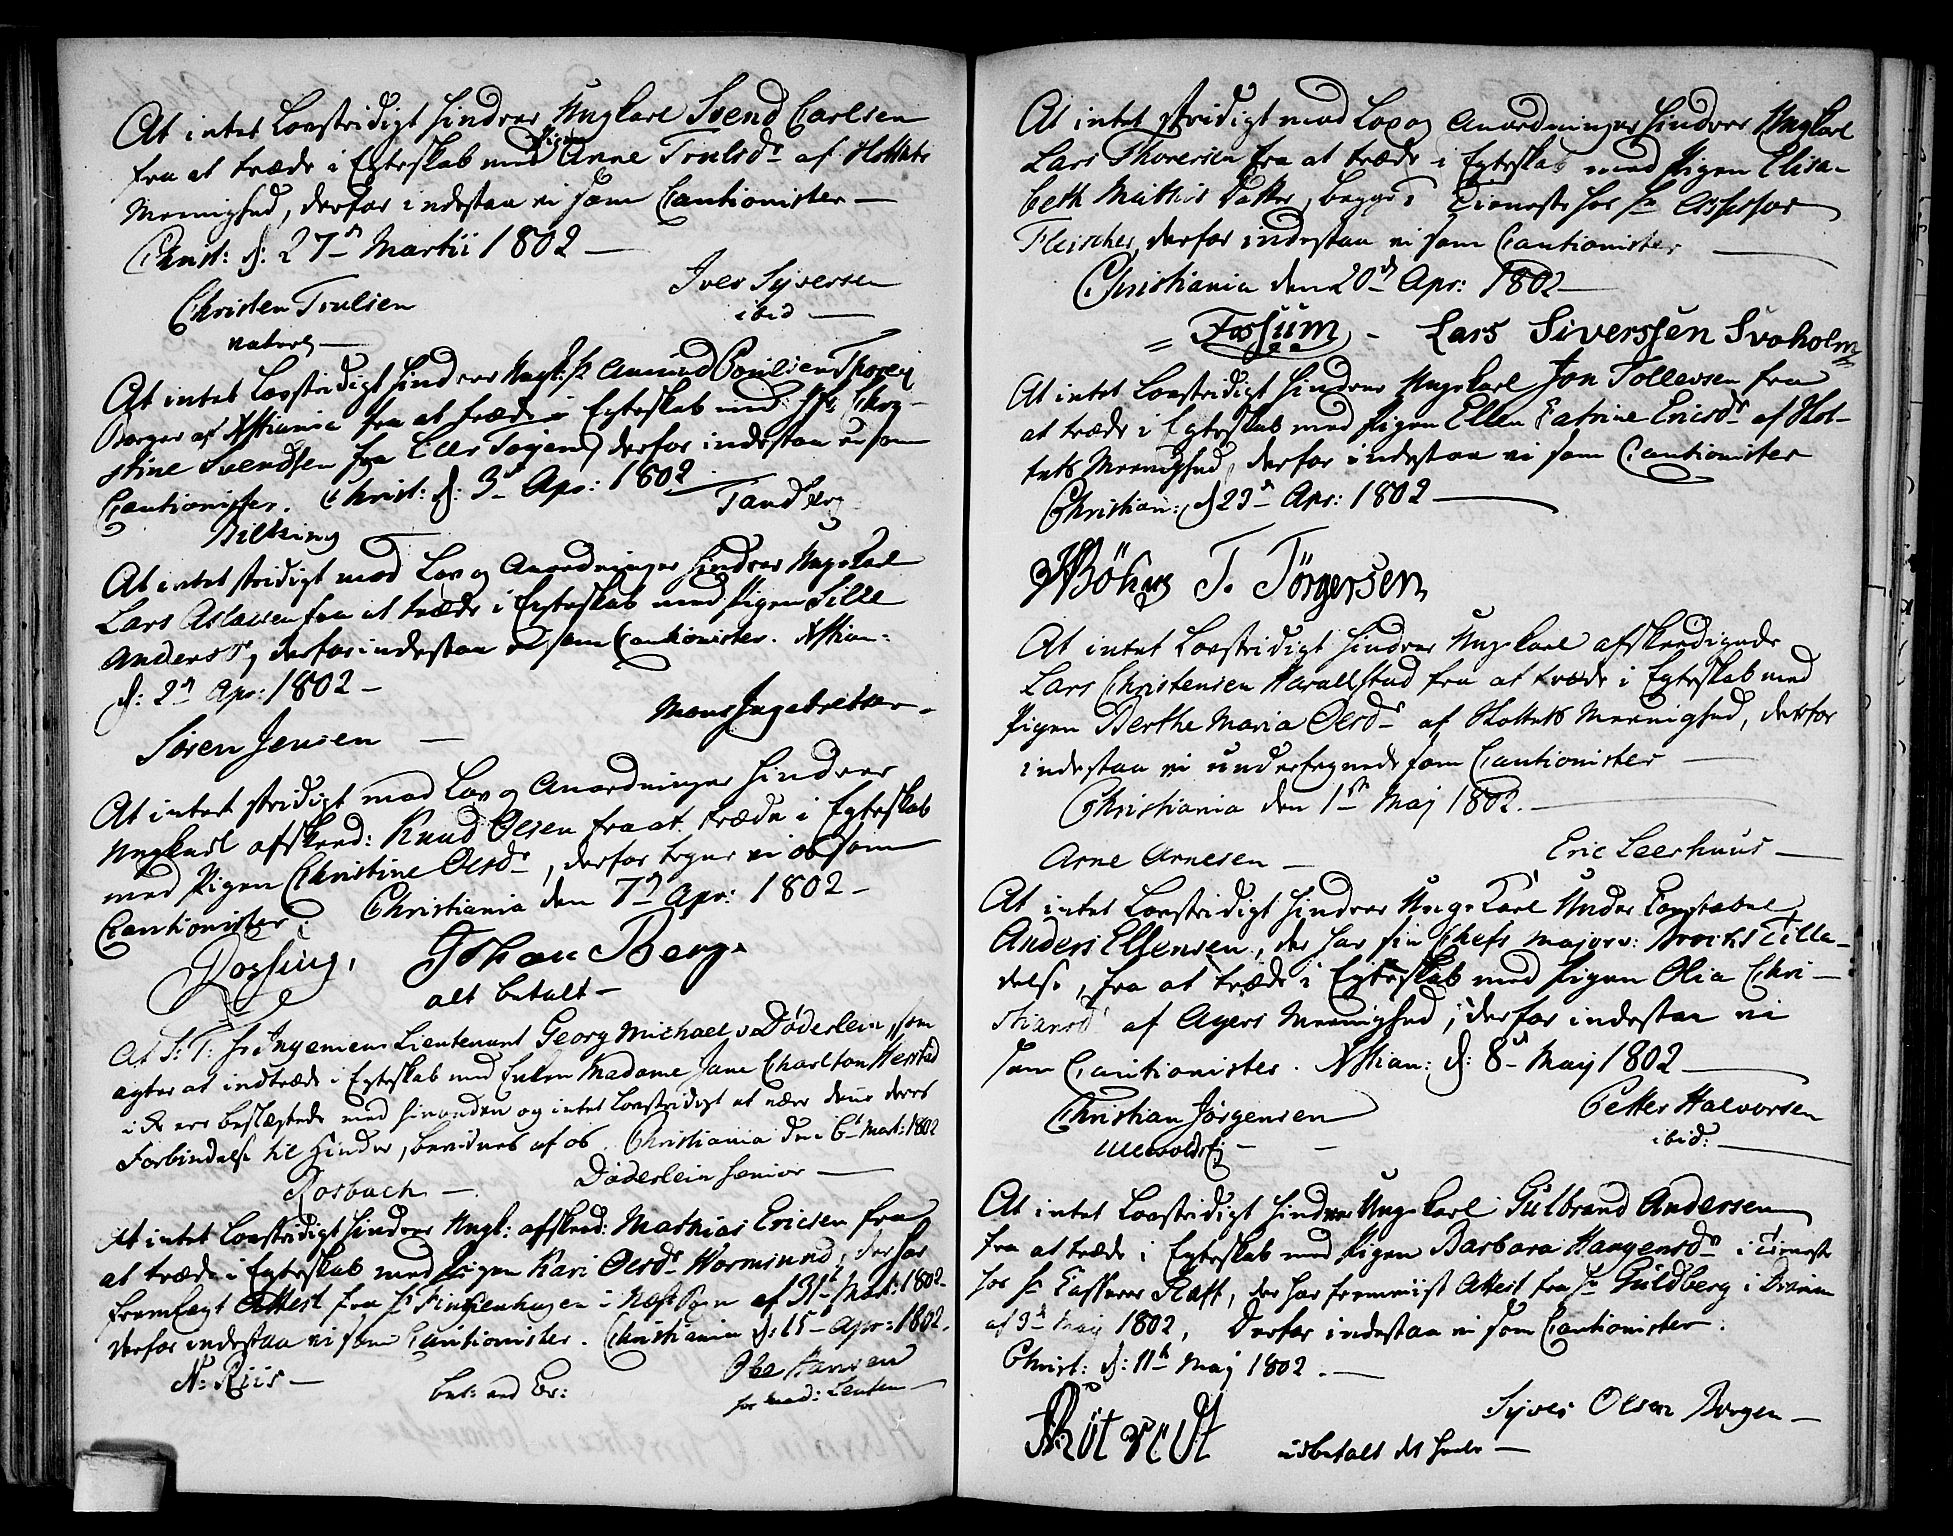 At intet Lovstridigt hindrer Ungkarl Svend Carlsen
fra at træde i Egteskab med Pigen Anne Trulsdr af Slottets
Meenighed, derfor indestaa vi som Cautionister
Christ: d: 27de Martii 1802
Christen Trulsen
Iver Syversen
ibid
At intet Lovstridigt hindrer Ungk: Hr Amund Poulsen
Borger af Xstiania fra at træde i Egteskab med Jfr Chri-
stine Svendsen fra derfor indestaa vi som
Cautionister. Christ: d: 3de Apr: 1802
Tandberg
At intet stridigt mod Lov og Anordninger hindrer Ungkarl
Lars Aslaksen fra at træde i Egteskab med Pigen Sille
Andersdr, derfor indestaa vi som Cautionister. Xstian:
d: 2de Apr: 1802
Søren Jensen
Mons Ingebretsen
At intet stridigt mod Lov og Anordninger hindrer
Ungkarl afskeed: Knud Olsen fra at træde i Egteskab
med Pigen Christine Olsdr, derfor tegne vi os som
Cautionister. Christiania den 7de Apr: 1802
Johan Berg
alt betalt
At S: T: Hr Ingenieur Lieutenant Georg Michael v Døderlein, som
agter at indtræde i Egteskab med Enken Madame Jane Charlton
i ei ere beslægtede med hinanden og intet Lovstridigt at være denne deres
Forbindelse til Hinder, bevidnes af os. Christiania den 6te Mart: 1802
Rosbach
Døderlein senior
At intet Lovstridigt hindrer Ungk: afskeed: Mathias Ericsen fra
at træde i Egteskab med Pigen Kari Olsdr Wormsund, der har
fremlagt Attest fra Hr Finckenhagen i af 31te Mart: 1802
derfor indestaa vi som Cautionister. Christiania d: 15de Apr: 1802.
N: Riis
Ole Hansen
At intet stridigt mod Lov og Anordninger hindrer Ungkarl
Lars Thoresen fra at træde i Egteskab med Pigen Elisa-
beth Mathis Datter, begge i Tieneste hos Hr Assessor
Fleischer, derfor indestaa vi som Cautionister
Christiania den 20de Apr: 1802
Fossum Lars Siverssen Svoholm
At intet Lovstridigt hindrer Ungkarl Jon Tollevsen fra
at træde i Egteskab med Pigen Ellen Catrine Ericsdr af Slot-
tets Meenighed, derfor indestaa vi som Cautionister
Christian: d 23de Apr: 1802
T. Törgersen
At intet Lovstridigt hindrer Ungkarl afskeedigede
Lars Christensen Harallstad fra at træde i Egteskab med
Pigen Berthe Maria Olsdr af Slottets Meenighed, derfor
indestaa vi undertegnede som Cautionister
Christiania den 1ste Maj 1802.
Arne Arnesen
Eric Leerhuus
At intet Lovstridigt hindrer Ungkarl Under Constabel
Anders Ellensen, der har sin Chefs Major v: Tilla-
delse, fra at træde i Egteskab med Pigen Olia Chri-
stiansdr af Agers Meenighed, derfor indestaa vi
som Cautionister. Xstian: d: 8de May 1802
Christian Jørgensen
Petter Halvorsen
ibid:
At intet Lovstridigt hindrer Ungkarl Gulbrand Andersen
fra at træde i Egteskab med Pigen Barbara Haagensdr i Tieneste
hos Hr Casserer Raft, der har fremviist Attest fra Hr Guldberg i Dramm
af 9de May 1802, Derfor indestaa vi som Cautionister.
Christ: d: 11te Maj 1802.
Syver Olsen Borgen